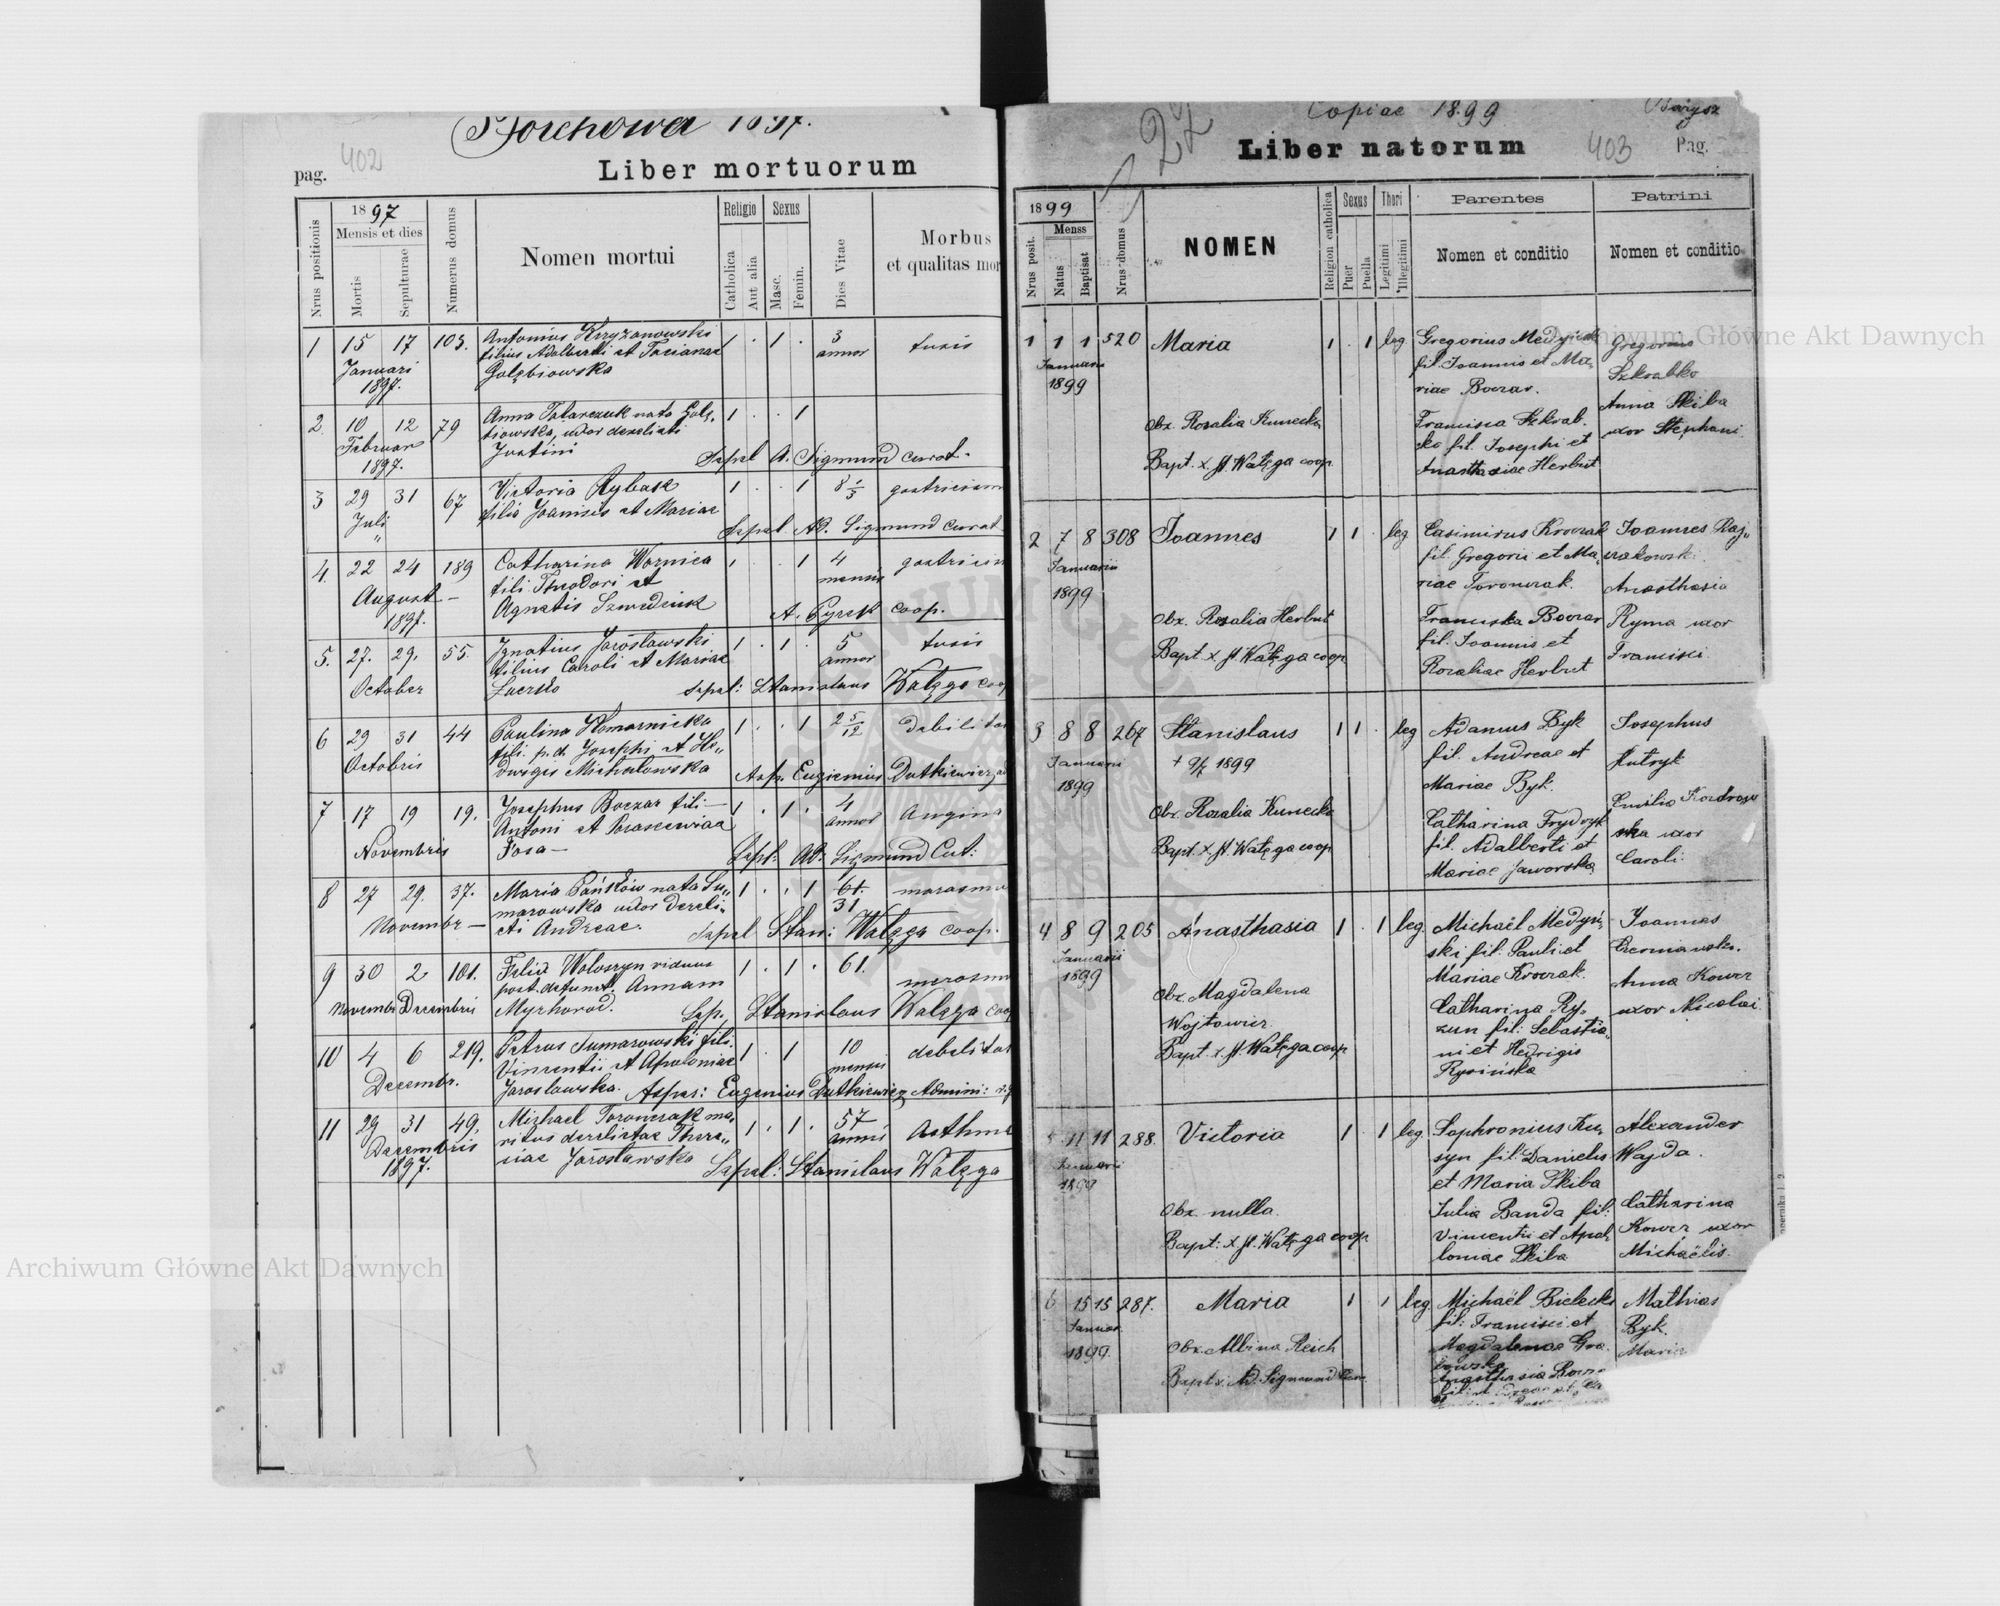 Archiwum Główne Akt Dawnych
1897.
402
pag.
Liber mortuorum
Nrus positionis
1897
Mensis et dies
Mortis
Sepulturae
Numerus domus
Nomen mortui
Religio
Catholica
Aut alia
Sexus
Masc.
Femin.
Dies Vitae
Morbus
et qualitas mor
1 15 17 103. Antonius Krzyżanowski 1 . 1 . 3 tusis
Januari filius Adalberti et Tacianae annor
1897. Gołębiowska
2 10 12 79 Anna Tatarczuk nata Gołę- 1 . . 1
Februar biowska, uxor derelicti
1897. Justini Sepel A. Sigmund curat.
3 29 31 67 Victoria Rybak 1 . . 1 8 1/3 gastricism
Juli filia Joannes et Mariae
" Sepel. Ad. Sigmund curat
4. 22 24 189 Catharina Wornica 1 . . 1 4 gastricism
August fili Theodori et mensis
1897. Agnetis Szwedziuk A. Pyrek coop.
5. 27. 29. 55. Ignatius Jarosławski 1 . 1 . 5 tusis
October filius Caroli et Mariae annor
Sepel: Stanislaus Wałęga coop
6 29 31 44 Paulina Komarnicka 1 . . 1 2 5/12 debilitas
Octobris fili. p.d. Josephi et He„
dwigis Michałowska Asps. Eugienius Dutkiewicz ad
7 17 19 19. Josephus Boczar fili 1 . 1 . 4 Angina
Novembris Antoni et Parascewiae annor
Fosa Sepel: Ad. Sigmund Cur:
8 27 29. 37. Maria Pańków nata Su„ 1 . . 1 61. marasmu
Novembr marowska uxor dereli- 31
cti Andreae. Sepel Stan: Wałęga coop.
9 30 2 101. Felix Wołoszyn viduus 1 . 1 . 61. marasmu
Novembr Decembris post defunct. Annam
Myrhorod. Sep. Stanislaus Wałęga coop
10 4 6 219. Petrus Sumarowski fili. 1 . 1 10 debilitas
Decembr. Vincentii et Apoloniae mensis
Jarosławska. Aspes: Eugenius Dutkiewicz Admini:
11 29 31 49. Michael Toronczak ma- 1 . 1 . 57 Asthma
Decembris ritus derelictae There„ annis
1897. siae Jarosławska Sepel: Stanislaus Wałęga
Archiwum Główne Akt Dawnych
27
Copiae 1899
Barysz
Liber natorum
403
Pag.
1899
Nrus posit.
Menss
Natus
Baptisat
Nrus domus
NOMEN
Religion catholica
Sexus
Puer
Puella
Thori
Legitimi
Illegitimi
Parentes
Nomen et conditio
Patrini
Nomen et conditio
1 1 1 520 Maria 1 . 1 leg Gregorius Medyński Gregorius
Januarii fil. Joannis et Ma- Szkrabko
1899 riae Boczar. Anna Skiba
Obx. Rosalia Kunecka Francisca Szkrab- uxor Stephani
ko fil. Josephi et
Bapt. x. St. Wałęga coop Anasthasiae Herbut
2 7 8 308 Joannes 1 1 . leg Casimirus Kroczak Joannes Raj-
Januarii fil. Gregorii et Ma- czakowski
1899 riae Toronczak. Anasthasia
Obx. Rosalia Herbut Franciska Boczar Ryma uxor
fil. Joannis et Francisci
Bapt. x. St. Wałęga coop Rozaliae Herbut
3 8 8 267 Stanislaus 1 1 . leg Adamus Byk Josephus
Januarii + 9/2 1899 fil. Andreae et Hutryk
1899 Mariae Byk.
Obx. Rosalia Kunecka Catharina Frydryk
fil. Adalberti et uxor
Bapt. x. St. Wałęga coop Mariae Jaworska Caroli
4 8 9 205 Anasthasia 1 . 1 leg. Michaël Medyń- Joannes
Januarii ski fil. Pauli et Czerniawski.
1899 Mariae Kroczak. Anna Kowcz
Obx. Magdalena Catharina Ry- uxor Nicolai
Wojtowicz. zun fil: Sebastia-
ni et Hedvigis
Bapt. x. St. Wałęga coop Rysińska
5 11 11 288. Victoria 1 . 1 leg. Sophronius Ku- Alexander
Januarii syn fil: Danielis Wajda.
1899 et Maria Skiba
Obx. nulla. Julia Banda fil: Catharina
Vincentii et Apol- Kowcz uxor
Bapt: x St. Wałęga coop loniae Skiba Michaëlis.
6 15 15 287. Maria 1 . 1 leg. Michaël Bielecki Mathias
Januar. fil: Francisci et Byk.
1899. Obx. Albina Reich Magdalenae Gra- Maria
bowska
Bapt x. Ad. Sigmund Anasthasia
Archiwum Główne Akt Dawnych